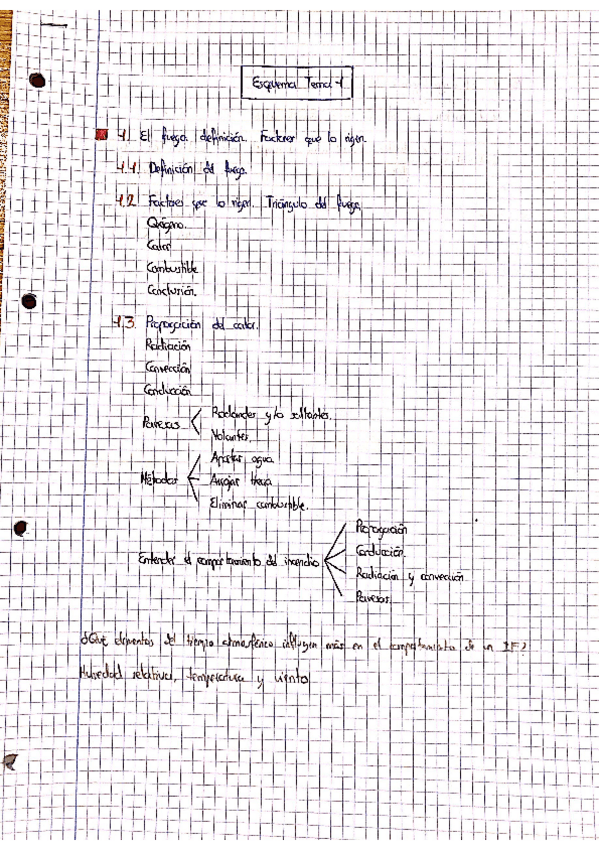 Esquema Tema 1
1. El fuego. definición. Factores que lo rigen.
1.1. Definición del fuego.
1.2. Factores que lo rigen. Triángulo del fuego.
Oxígeno.
Calor
Combustible
Conclusión.
1.3. Propagación del calor.
Radiación
Convección
Conducción
Pavesas
Rodantes y/o saltantes.
Volantes.
Métodos
Aportar agua.
Arrojar tierra
Eliminar combustible.
Entender el comportamiento del incendio
Propagación
Conducción.
Radiación y convección.
Pavesas.
¿Qué elementos del tiempo atmosférico influyen más en el comportamiento de un IF?
Humedad relativa, temperatura y viento